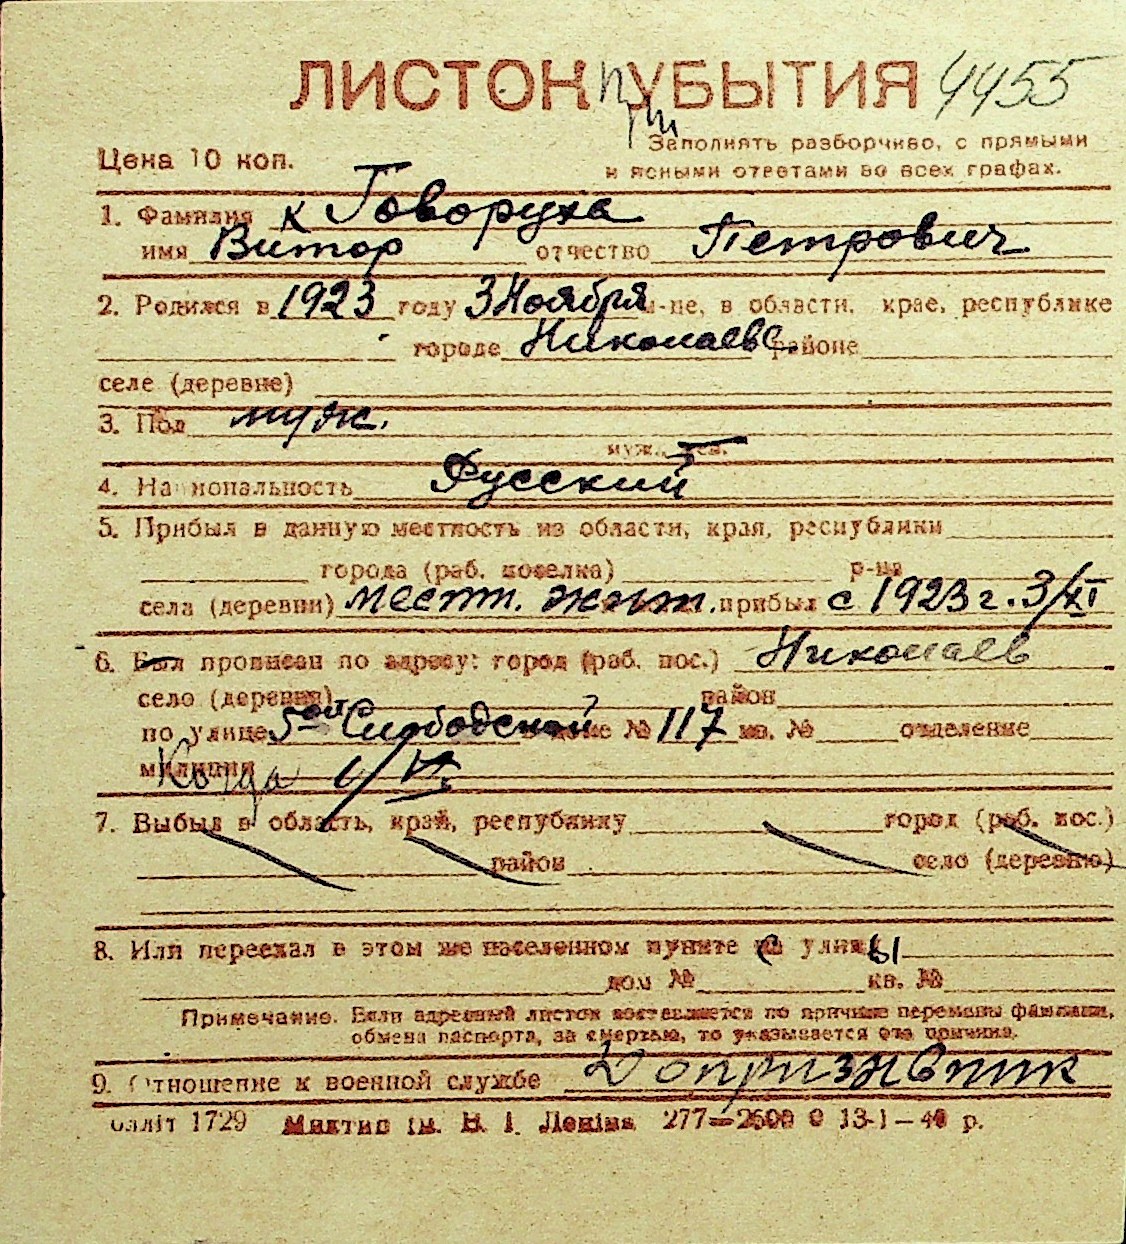 ЛИСТОК УБЫТИЯ 4455
Цена 10 коп.
Заполнять разборчиво, с прямыми
и ясными ответами во всех графах.
1. Фамилия к Говоруха
имя Витор отчество Петрович
2. Родился в 1923 году 3 Ноября м-це, в области, крае, республике
городе Николаеве районе
селе (деревне)
3. Пол муж.
муж., жен.
4. Национальность Русский
5. Прибыл в данную местность из области, края, республики
города (раб. поселка) р-на
села (деревни) местн. жит. прибыл с 1923 г. 3/XI
6. Был прописан по адресу: город (раб. пос.) Николаев
село (деревня) район
по улице 5ой Слободской доме № 117 кв. № отделение
милиции Когда
7. Выбыл в область, край, республику город (раб. пос.)
район село (деревню)
8. Или переехал в этом же населенном пункте с улицы
дом № кв. №
Примечание. Если адресный листок составляется по причине перемены фамилии,
обмена паспорта, за смертью, то указывается эта причина.
9. Отношение к военной службе Допризывник
блліт 1729 Миктип ім. В. І. Леніна 277—2600 0 13-1—40 р.